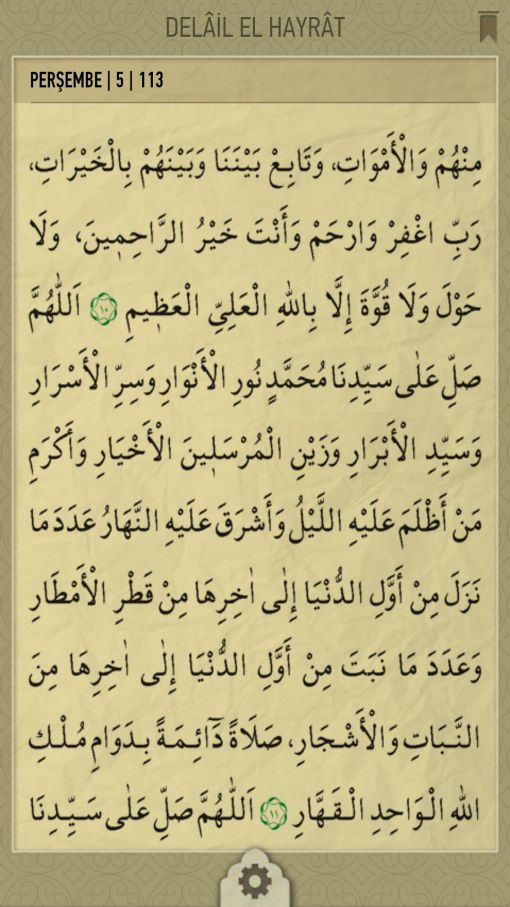 DELÂİL EL HAYRÂT
PERŞEMBE | 5 | 113
مِنْهُمْ وَالْأَمْوَاتِ، وَتَابِعْ بَيْنَنَا وَبَيْنَهُمْ بِالْخَيْرَاتِ،
رَبِّ اغْفِرْ وَارْحَمْ وَأَنْتَ خَيْرُ الرَّاحِمٖينَ، وَلَا
حَوْلَ وَلَا قُوَّةَ إِلَّا بِاللهِ الْعَلِيِّ الْعَظٖيمِ ١٠ اَللّٰهُمَّ
صَلِّ عَلٰى سَيِّدِنَا مُحَمَّدٍ نُورِ الْأَنْوَارِ وَسِرِّ الْأَسْرَارِ
وَسَيِّدِ الْأَبْرَارِ وَزَيْنِ الْمُرْسَلٖينَ الْأَخْيَارِ وَأَكْرَمِ
مَنْ أَظْلَمَ عَلَيْهِ اللَّيْلُ وَأَشْرَقَ عَلَيْهِ النَّهَارُ عَدَدَ مَا
نَزَلَ مِنْ أَوَّلِ الدُّنْيَا إِلٰى اٰخِرِهَا مِنْ قَطْرِ الْأَمْطَارِ
وَعَدَدَ مَا نَبَتَ مِنْ أَوَّلِ الدُّنْيَا إِلٰى اٰخِرِهَا مِنَ
النَّبَاتِ وَالْأَشْجَارِ، صَلَاةً دَٓائِمَةً بِدَوَامِ مُلْكِ
اللهِ الْوَاحِدِ الْقَهَّارِ ١١ اَللّٰهُمَّ صَلِّ عَلٰى سَيِّدِنَا